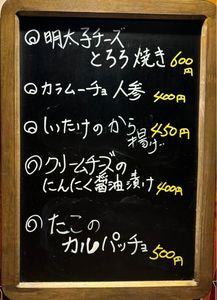 ◎明太子チーズ
とろろ焼き 600円
◎カラムーチョ人参 400円
◎しいたけのから揚げ 450円
◎クリームチーズの
にんにく醤油漬け 400円
◎たこの
カルパッチョ 500円